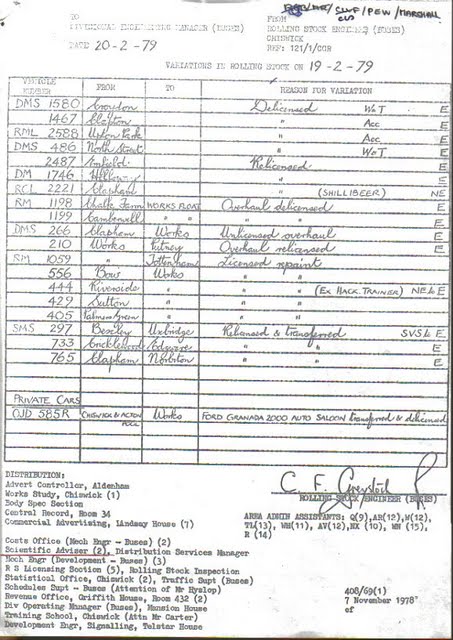 TO
FROM
DIVISIONAL ENGINEERING MANAGER (BUSES)
ROLLING STOCK ENGINEER (BUSES)
CHISWICK
REF: 121/1/COR
DATE 20-2-79
VARIATIONS IN ROLLING STOCK ON 19-2-79
VEHICLE NUMBER FROM TO REASON FOR VARIATION
DMS 1580 Croydon Delicensed WoT E
1467 Clapton " Acc E
RML 2588 Upton Park " Acc E
DMS 486 North Street " WoT E
2487 Enfield Relicensed E
DM 1746 Holloway " E
RCL 2221 Clapham " (SHILLIBEER) NE
RM 1198 Chalk Farm WORKS FLOAT Overhaul delicensed E
1199 Camberwell " " " " E
DMS 266 Clapham Works Unlicensed overhaul E
210 Works Putney Overhaul relicensed E
RM 1059 " Tottenham Licensed repaint E
556 Bow Works " " E
444 Riverside " " " (EX HACK. TRAINER) NE & E
429 Sutton " " " E
405 Palmers Green " " " E
SMS 297 Bexley Uxbridge Relicensed & transferred SVS & E
733 Cricklewood Edgware " " E
765 Clapham Norbiton " " E
PRIVATE CARS
OJD 585R CHISWICK & ACTON POOL Works FORD GRANADA 2000 AUTO SALOON transferred & delicensed
DISTRIBUTION:
Advert Controller, Aldenham
Works Study, Chiswick (1)
Body Spec Section
Central Record, Room 34
Commercial Advertising, Lindsay House (7)
ROLLING STOCK ENGINEER (BUSES)
AREA ADMIN ASSISTANTS: Q(9), AR(12), W(12),
TL(13), WH(11), AV(12), NX (10), WN (15),
R (14)
Costs Office (Mech Engr - Buses) (2)
Scientific Adviser (2), Distribution Services Manager
Mech Engr (Development - Buses) (3)
R S Licensing Section (5), Rolling Stock Inspection
Statistical Office, Chiswick (2), Traffic Supt (Buses)
Schedules Supt - Buses (Attention of Mr Hyslop)
Revenue Office, Griffith House, Room 432 (2)
Div Operating Manager (Buses), Mansion House
Training School, Chiswick (Attn Mr Carter)
Development Engr, Signalling, Telstar House
408/69(1)
7 November 1978
ef